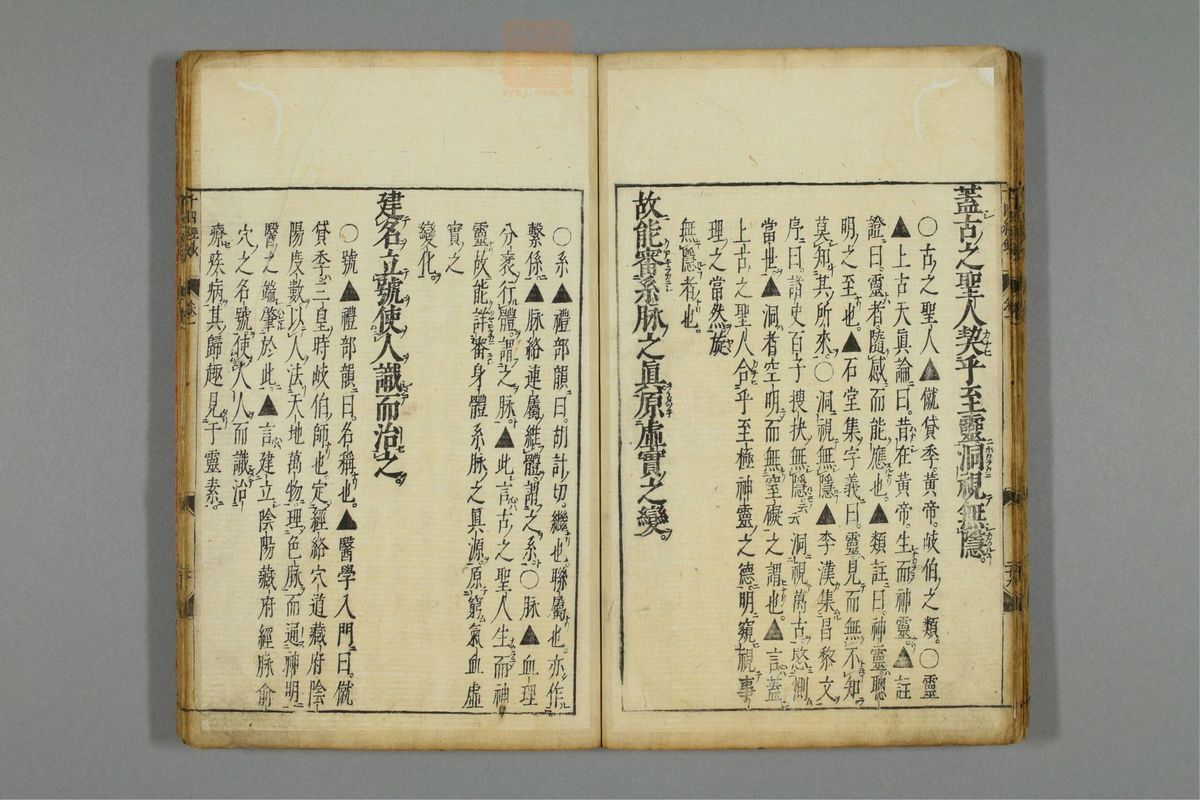 蓋古之聖人契乎至靈洞視無隱。
○古之聖人▲僦貸季黃帝。岐伯之類。○靈
▲上古天眞論曰。昔在黃帝。生而神靈。▲註
證曰靈者。隨感而能應也。▲類註曰神靈聰
明之至也。▲石堂集字義曰。靈見而無不知
莫知其所來。○洞視無隱▲李漢集昌黎文
序曰。諸史百子搜抉無隱云洞視萬古愍惻
當世。▲洞者空明而無窒礙之謂也。▲言蓋
上古之聖人合乎至極神靈之德。明窺視事
理之當然旋
無隱者也。
故能審系脉之眞原虛實之變。
○系▲禮部韻曰。胡計切。繼也聯屬也。亦作
繫係▲脉絡連屬維體。謂之系。○脉▲血理
分衺行體謂之脉。▲此言古之聖人生而神
靈故能詳審身體系脉之眞源。原窮氣血虛
實之
變化。
建名立號使人識而治之。
○號▲禮部韻曰。名稱也。▲醫學入門曰。僦
貸季三皇時岐伯師也。定經絡穴道藏府陰
陽度數以人法天地萬物理色脉而通神明
醫之端肇於此。▲言建立陰陽藏府經脉俞
穴之名號使人人而識治
療疾病其歸趣見于靈素。